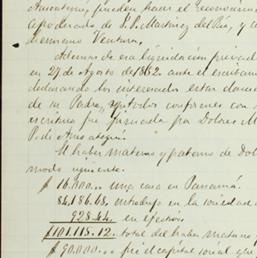 Aurentina, pueden hacer el reconocim
apoderado de J. P. Martinez del Rio, y de
hermano Ventura.
Ademas de esa liquidacion privada
en 29 de Agosto de 1862 ante el escribano
declarando los interesados estar
de su Padre, y todos conformes con
escritura fue firmada por Dolores M
P. de Arosategui.
El haber materno y paterno de Dol
modo siguiente.
$ 16.000... una casa en Panamá.
84,186.68, introdujo en la sociedad d
928.44. en efectivo
$101.115.12. total del haber materno y
$90.000... fue el capital social que